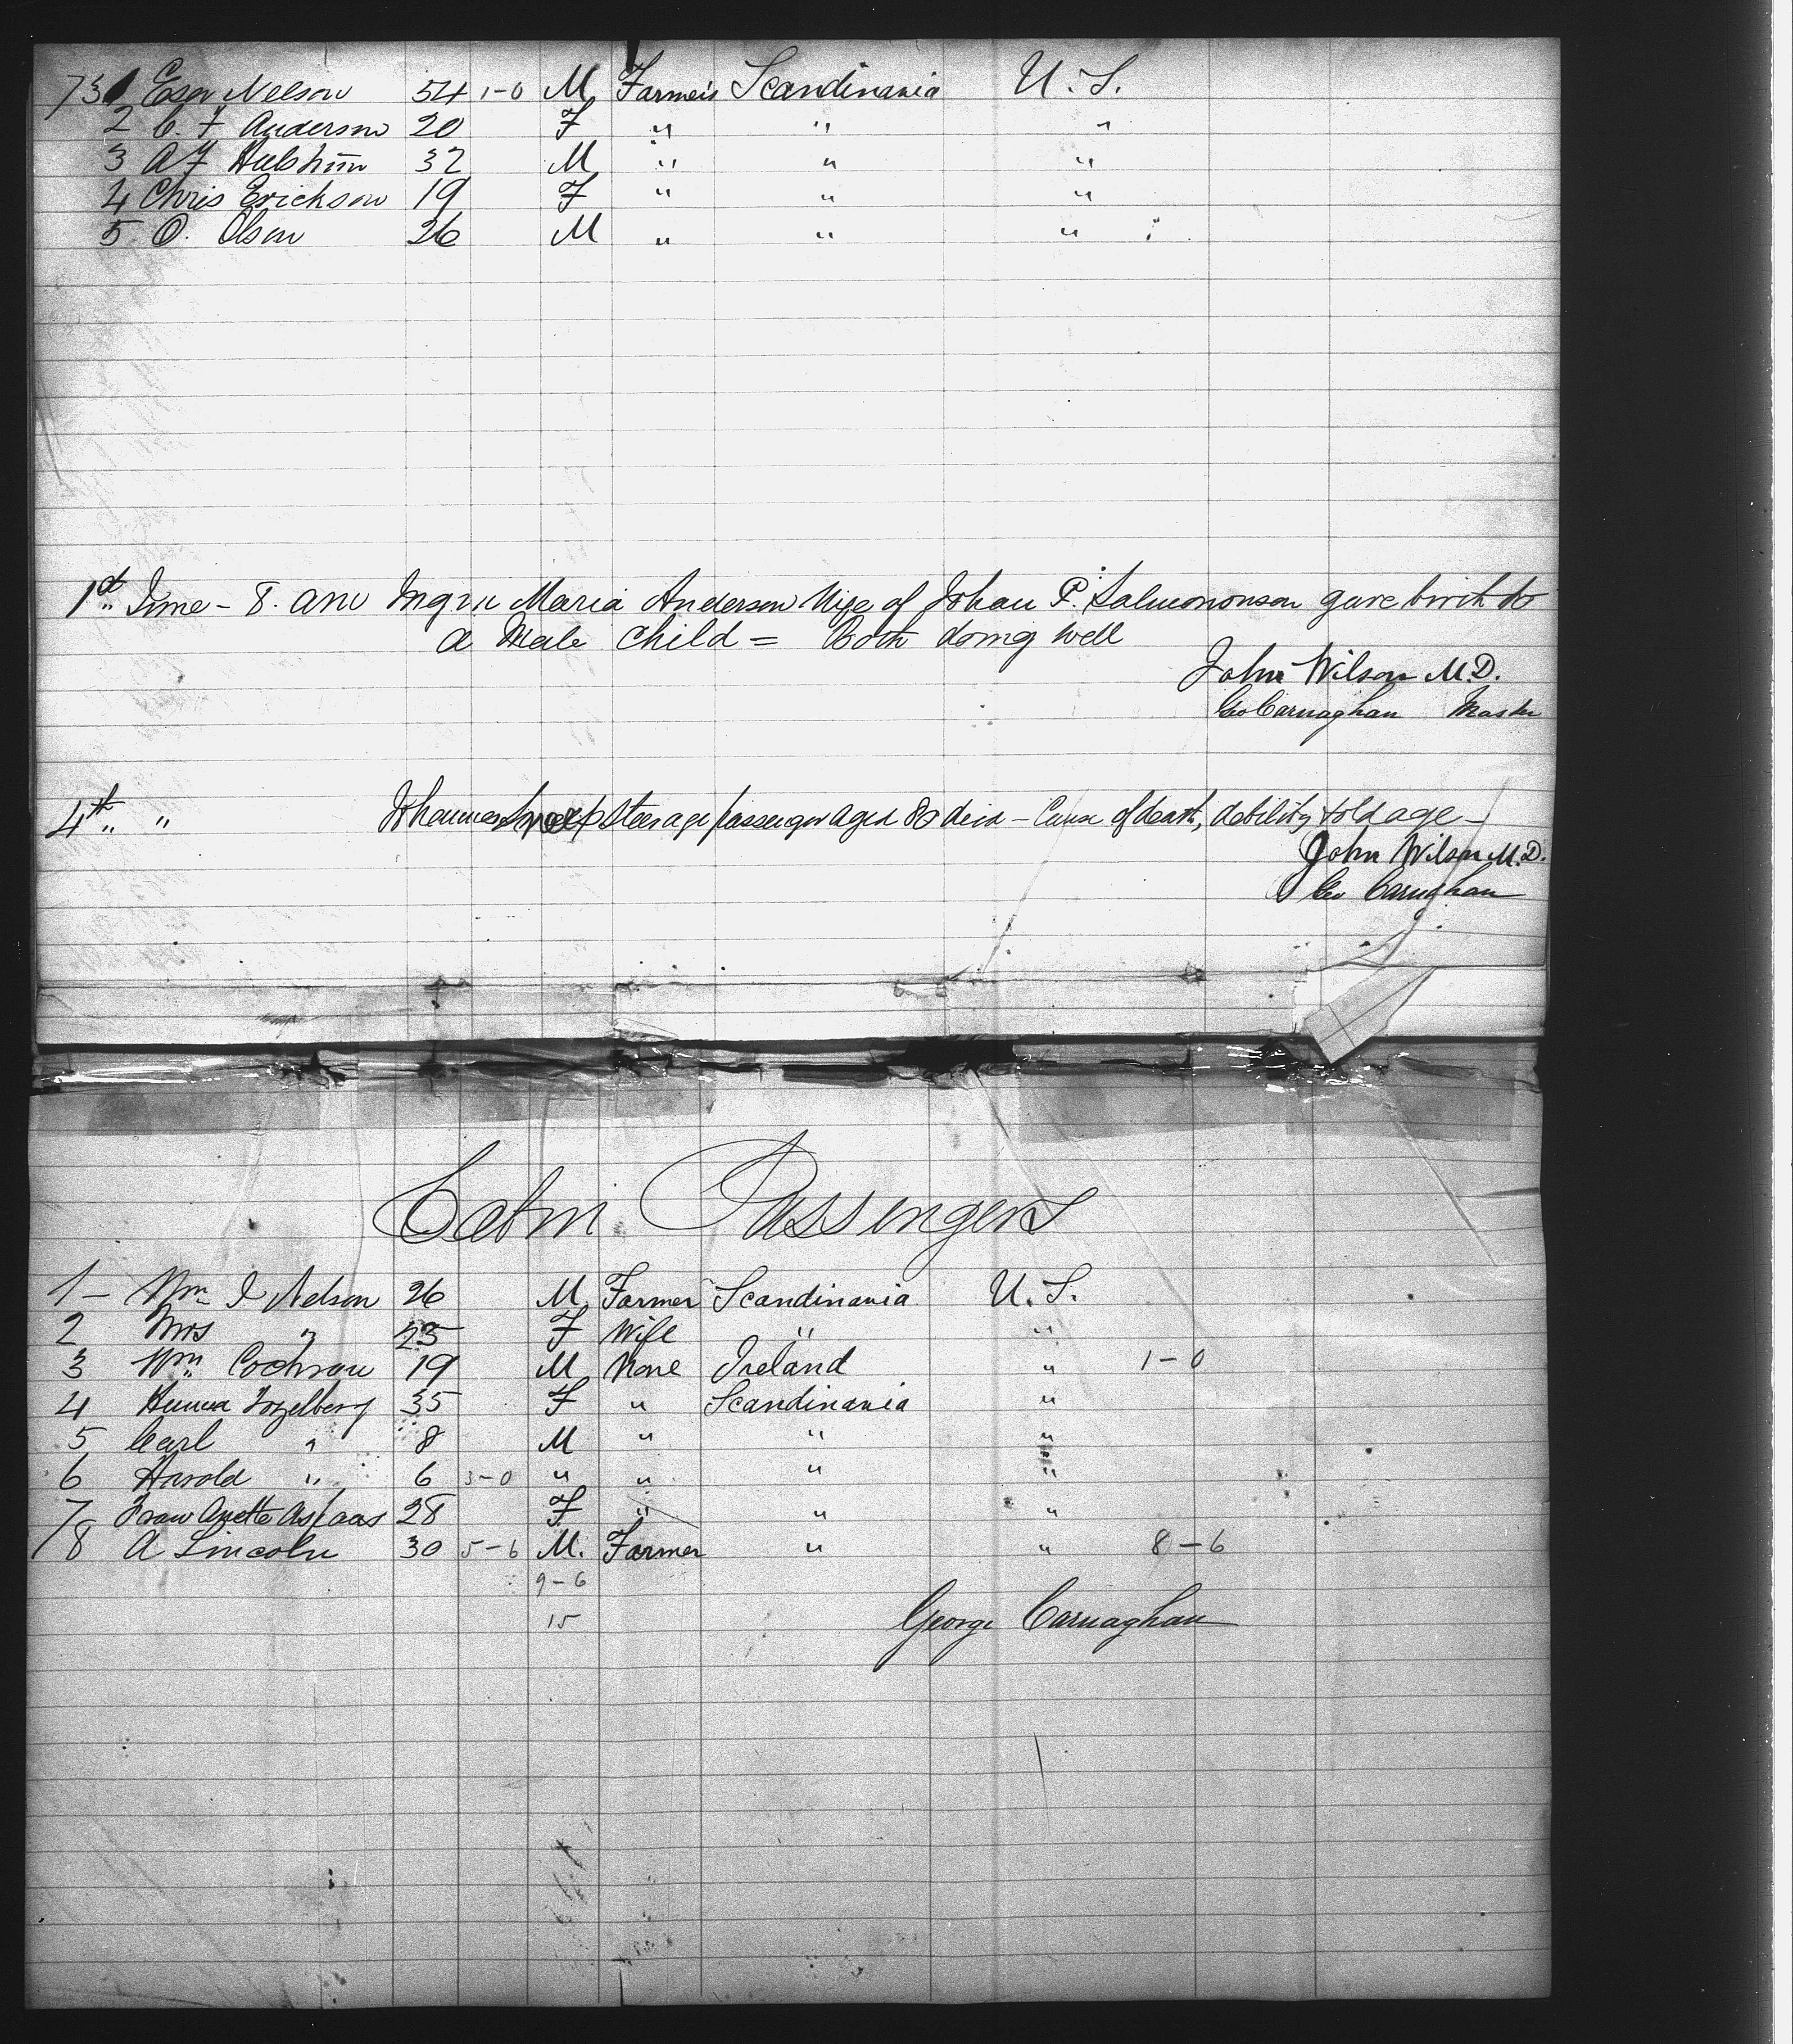 731 Esa Nelson 54 1-0 M Farmers Scandinavia U.S.
2 C. F Anderson 20 F " " "
3 A F 32 M " " "
4 Chris Erickson 19 F " " "
5 O. Olson 26 M " " "
1st June - 8. am Maria Anderson Wife of Johan P. Salmononson gave birth to
a Male Child = both doing well
John Wilson M.D.
Geo Carnaghan Master
4th " " Johannes steerage passenger aged 80 died - Cause of death, debility & old age -
John Wilson M.D.
Geo Carnaghan
Cabin Passengers
1 - Wm I Nelson 26 M. Farmer Scandinavia U.S.
2 Mrs " 25 F Wife " "
3 Wm Cochran 19 M None Ireland " 1-0
4 35 F " Scandinavia "
5 Carl " 8 M " " "
6 Harold " 6 3-0 " " " "
7 28 F " " "
/8 A Lincoln 30 5-6 M. Farmer " " 8-6
9-6
15
George Carnaghan